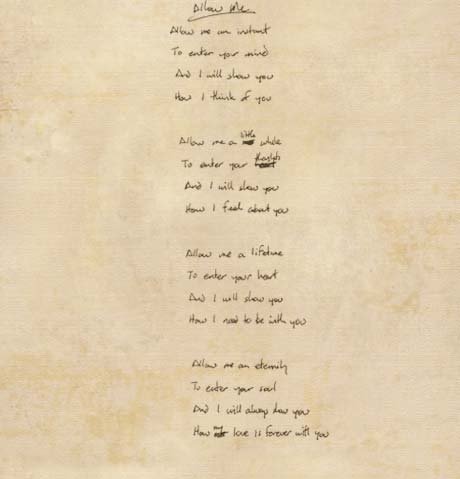 Allow Me
Allow me an instant
To enter your mind
And I will show you
How I think of you
Allow me a little while
To enter your thoughts
And I will show you
How I feel about you
Allow me a lifetime
To enter your heart
And I will show you
How I need to be with you
Allow me an eternity
To enter your soul
And I will always show you
How love is forever with you